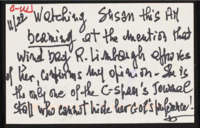 11/22 Watching Susan this AM
beaming at the mention that
wind bag R. Limbaugh approves
of her, confirms my opinion - She is
the only one of the C-Span's Journal
staff who cannot hide her G.O.P. preference!